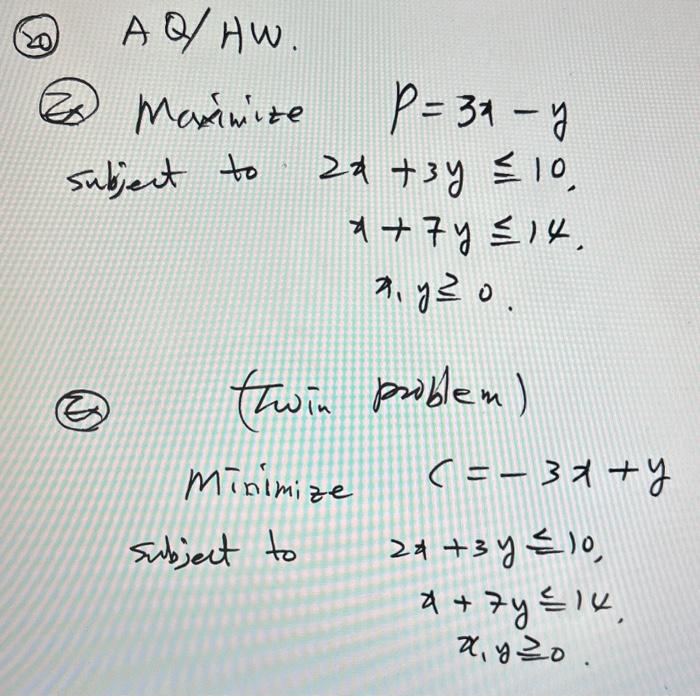 20 A Q/HW.
Ex Maximize P = 3x - y
subject to 2x + 3y ≤ 10,
x + 7y ≤ 14.
x, y ≥ 0.
Ex (twin problem)
Minimize C = -3x + y
subject to 2x + 3y ≤ 10,
x + 7y ≤ 14.
x, y ≥ 0.